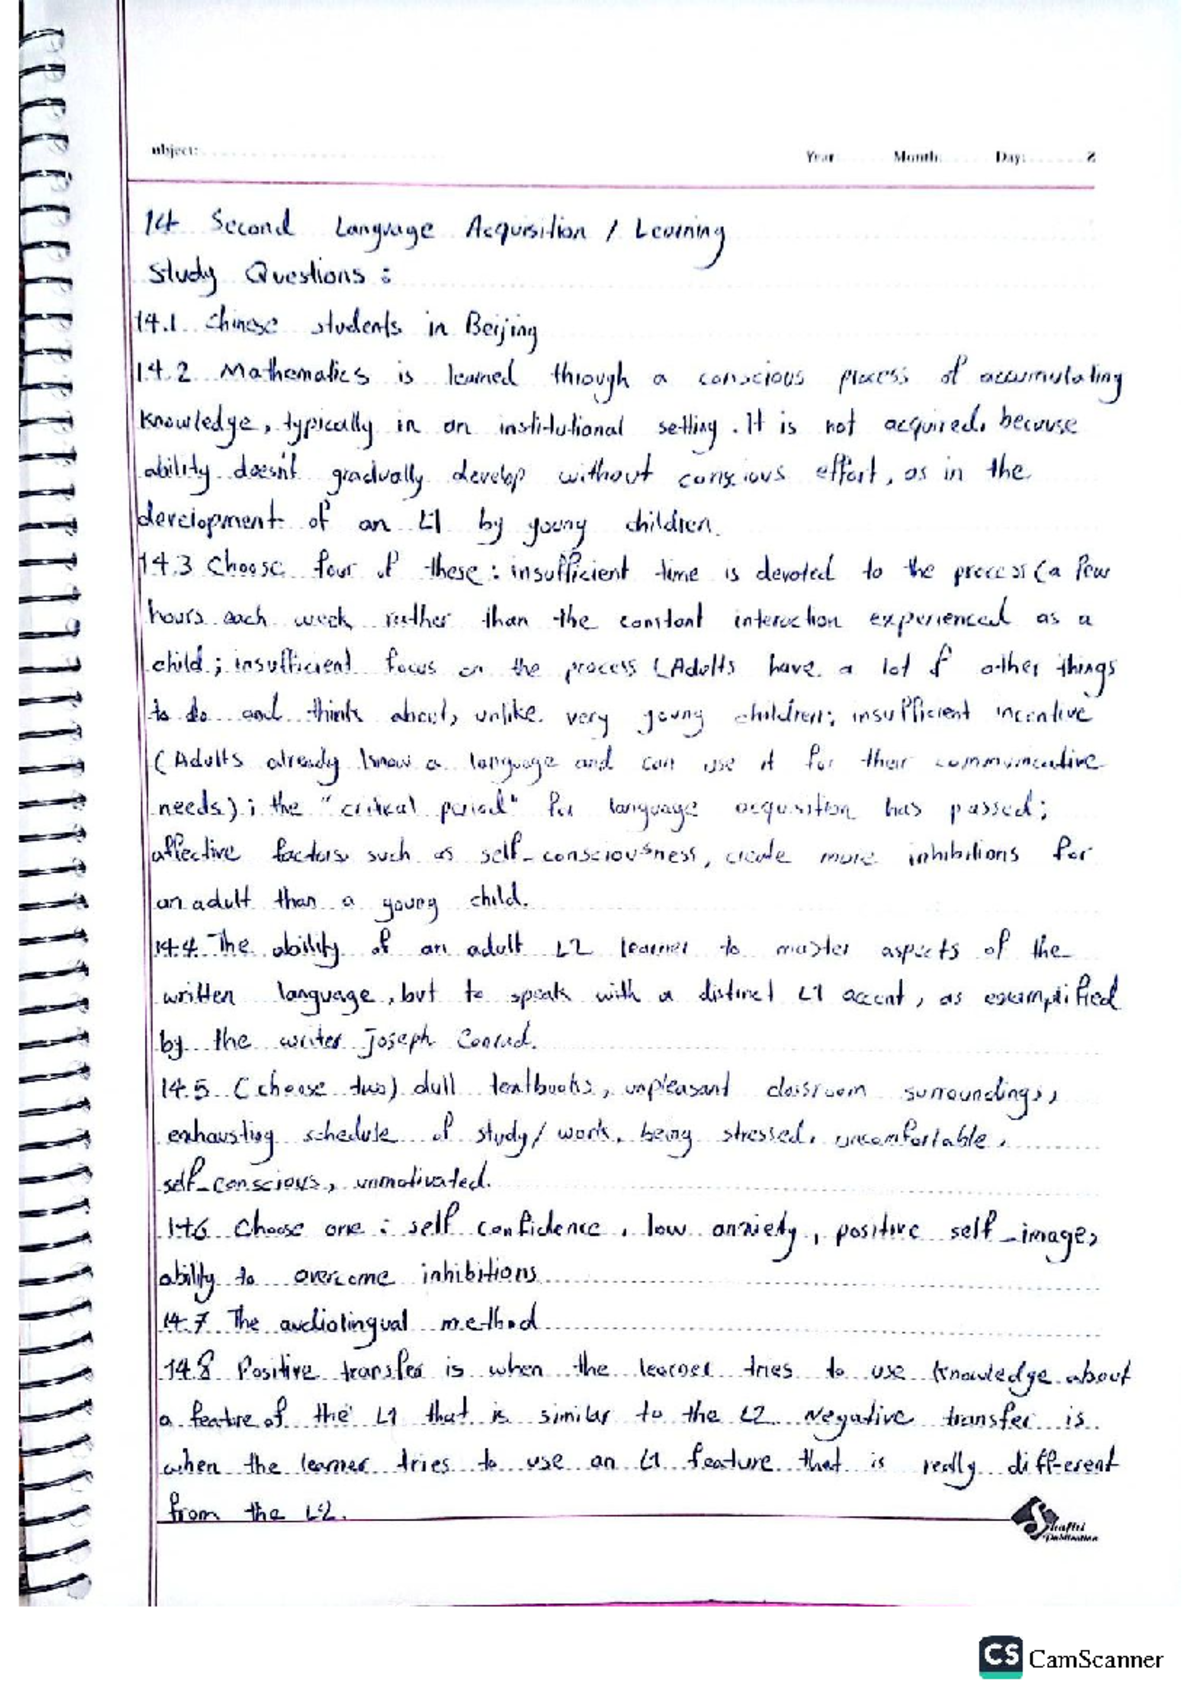 ubject:
Year Month: Day:
14 Second Language Acquisition / Learning
Study Questions :
14.1 Chinese students in Beijing
14.2 Mathematics is learned through a conscious process of accumulating
knowledge, typically in an institutional setting. It is not acquired, because
ability doesn't gradually develop without conscious effort, as in the
development of an L1 by young children.
14.3 Choose four of these : insufficient time is devoted to the process (a few
hours each week rather than the constant interaction experienced as a
child ; insufficient focus on the process (Adults have a lot of other things
to do and think about, unlike very young children; insufficient incentive
(Adults already know a language and can use it for their communicative
needs) ; the "critical period" for language acquisition has passed;
affective factors, such as self-consciousness, create more inhibitions for
an adult than a young child.
14.4 The ability of an adult L2 learner to master aspects of the
written language, but to speak with a distinct L1 accent, as exemplified
by the writer Joseph Conrad.
14.5 (choose two) dull textbooks, unpleasant classroom surroundings,
exhausting schedule of study/ work, being stressed, uncomfortable,
self-conscious, unmotivated.
14.6 Choose one : self confidence, low anxiety, positive self-image,
ability to overcome inhibitions
14.7 The audiolingual method
14.8 Positive transfer is when the learner tries to use knowledge about
a feature of the L1 that is similar to the L2 Negative transfer is
when the learner tries to use an L1 feature that is really different
from the L2.
CS CamScanner